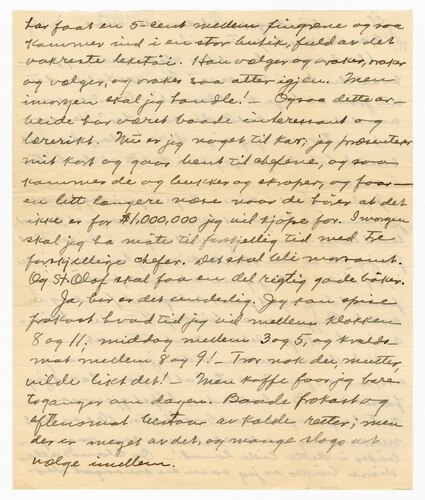 har faat en 5-cent mellem fingrene og saa
kommer ind i en stor butik, fuld av det
vakreste leketøi. Han vælger og vraker, vraker
og vælger, og vraker saa atter igjen. Men
imorgen skal jeg handle! – Ogsaa dette ar-
beide har været baade interessant og
lærerikt. Nu er jeg noget til kar; jeg præsenterer
mit kort og gaar bent til chefene, og saa
kommer de og bukker og skraper, og faar —
en litt længere næse naar de hører at det
ikke er for $1,000,000 jeg vil kjøpe for. Imorgen
skal jeg ha møte til forskjellig tid med tre
forskjellige chefer. Det skal bli morsomt.
Og St. Olaf skal faa en del rigtig gode bøker.
Ja, her er det underlig. Jeg kan spise
frokost hvad tid jeg vil mellem klokken
8 og 11; middag mellem 3 og 5, og kvelds-
mat mellem 8 og 9! – Tror nok du, mutter,
vilde likt det! – Men kaffe faar jeg bare
to ganger om dagen. Baade frokost og
aftensmat bestaar av kolde retter; men
der er meget av det, og mange slags at
vælge imellem.